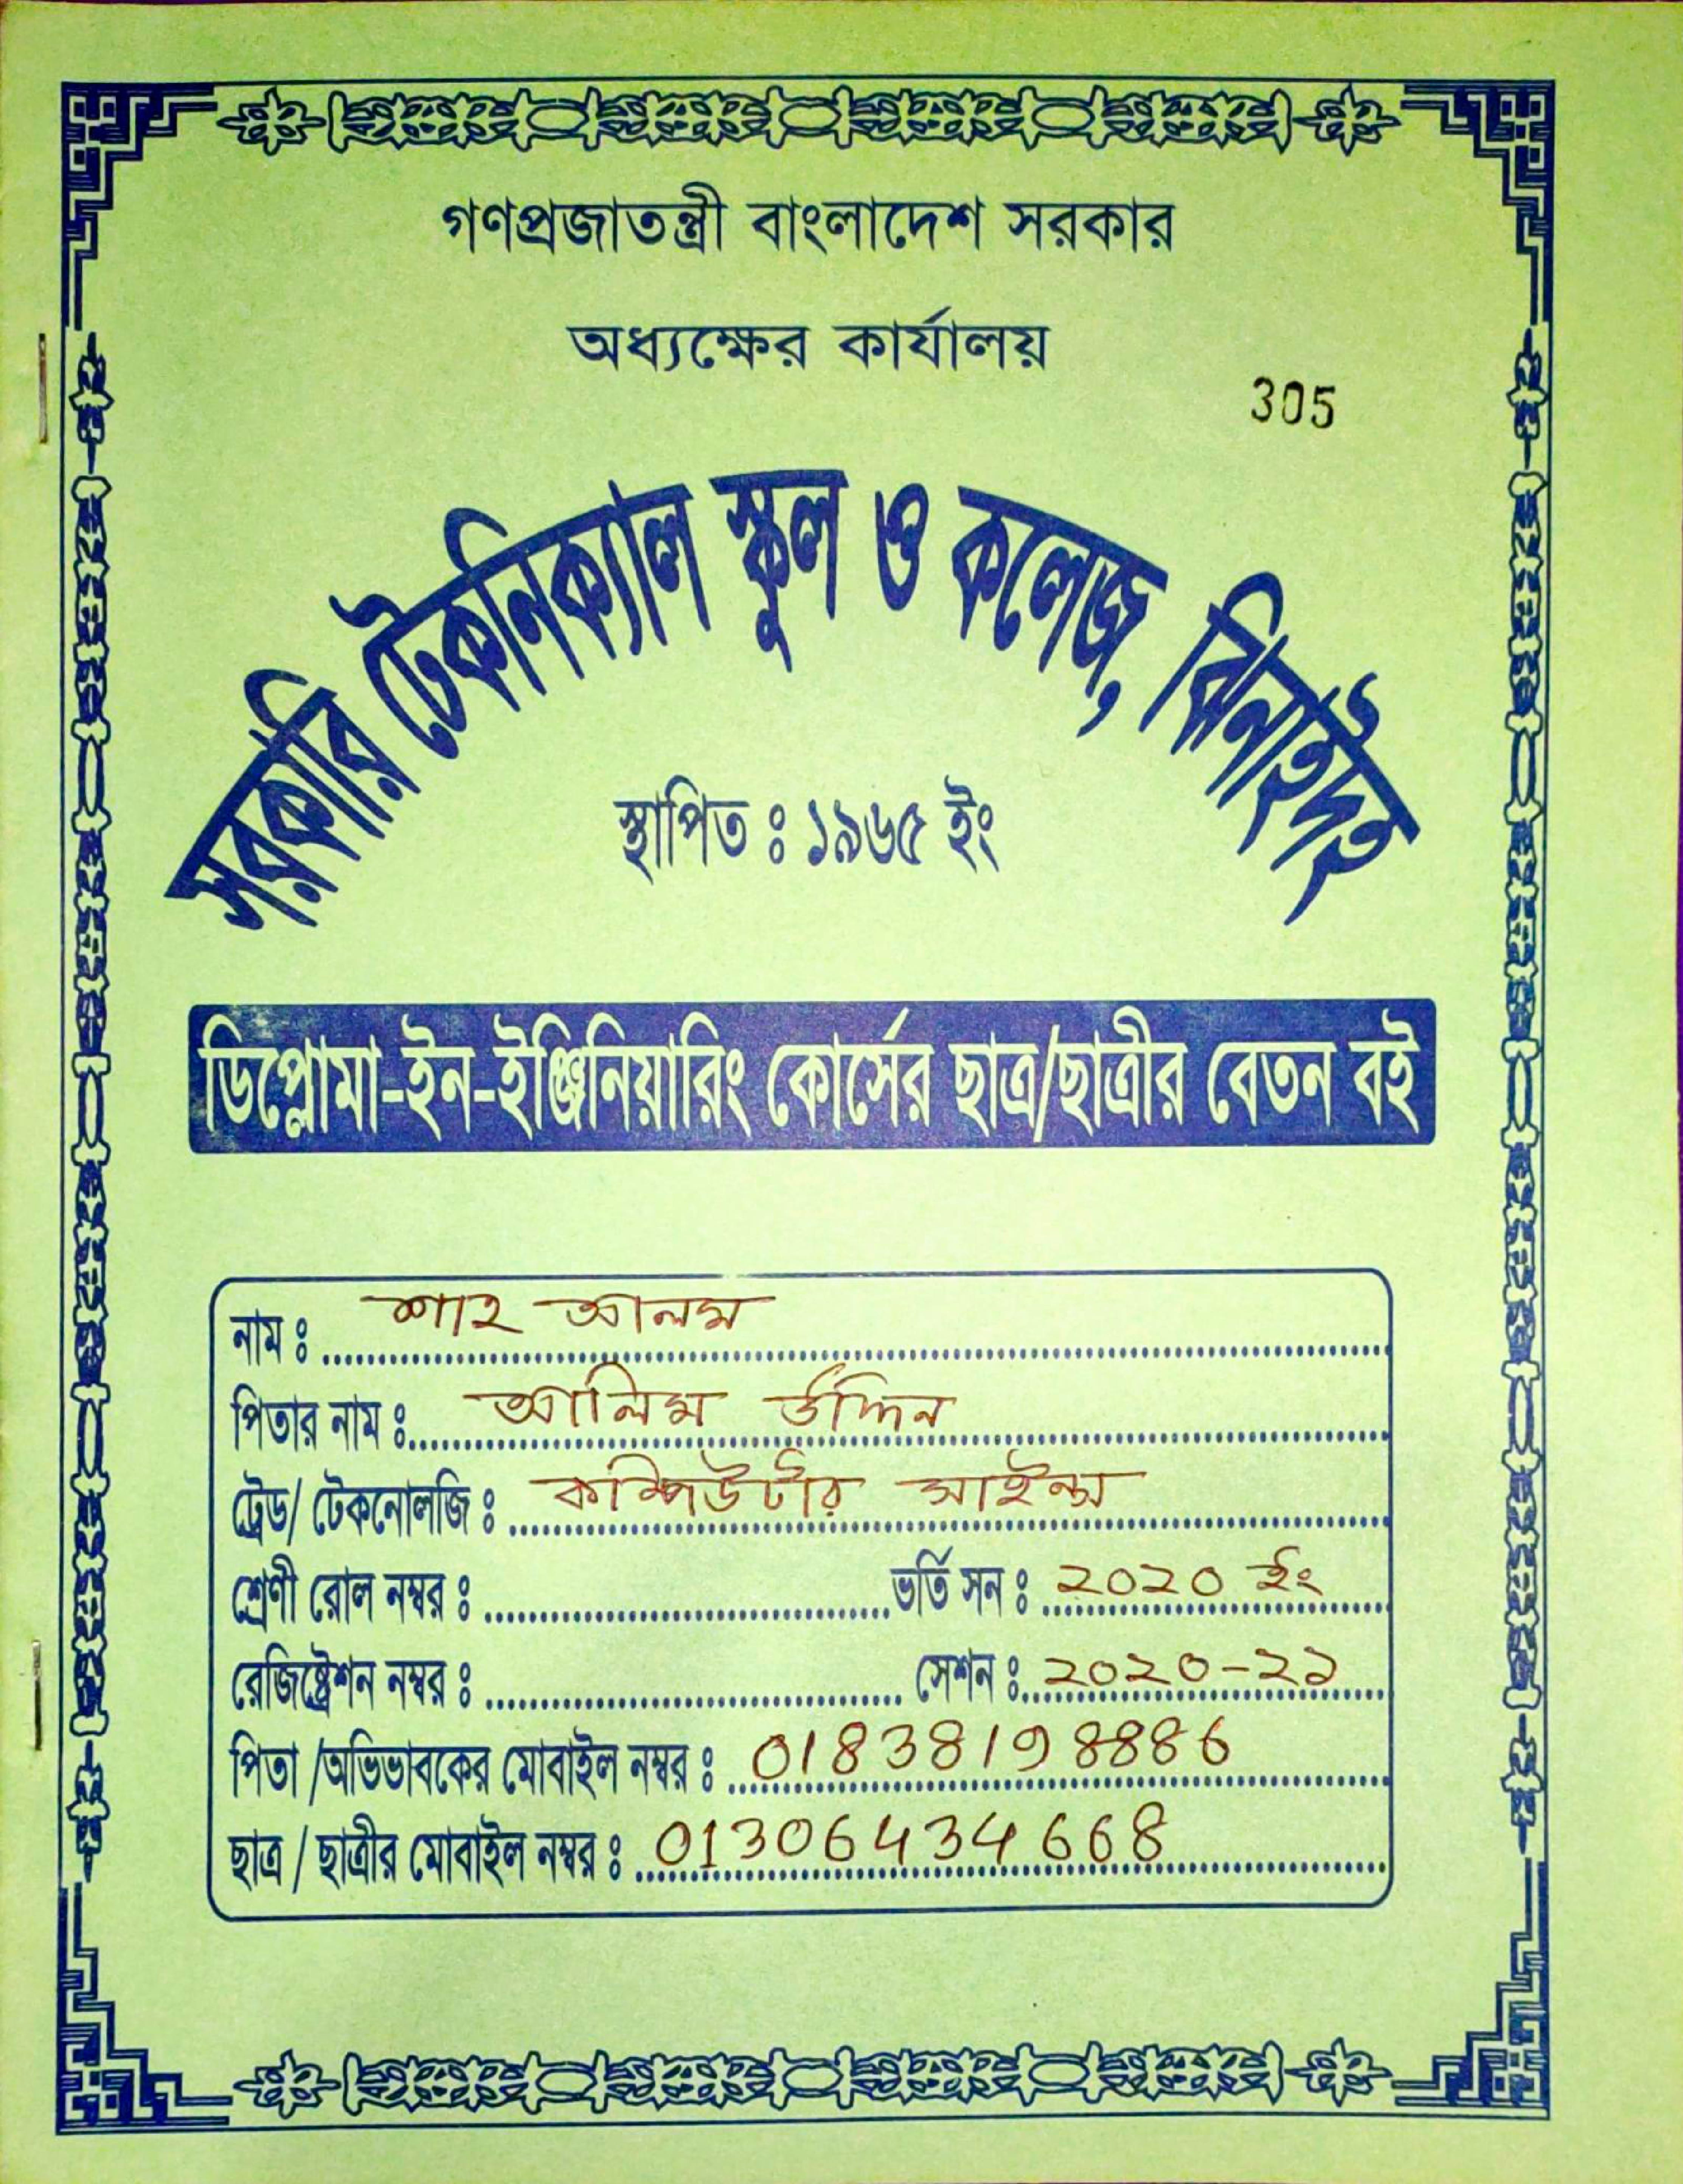 গণপ্রজাতন্ত্রী বাংলাদেশ সরকার
অধ্যক্ষের কার্যালয়
305
সরকারি টেকনিক্যাল স্কুল ও কলেজ, ঝিনাইদহ
স্থাপিত ঃ ১৯৬৫ ইং
ডিপ্লোমা-ইন-ইঞ্জিনিয়ারিং কোর্সের ছাত্র/ছাত্রীর বেতন বই
নাম ঃ শাহ আলম
পিতার নাম ঃ আলিম উদ্দিন
ট্রেড/ টেকনোলজি ঃ কম্পিউটার সাইন্স
শ্রেণী রোল নম্বর ঃ ভর্তি সন ঃ ২০২০ ইং
রেজিষ্ট্রেশন নম্বর ঃ সেশন ঃ ২০২০-২১
পিতা /অভিভাবকের মোবাইল নম্বর ঃ 01838198886
ছাত্র / ছাত্রীর মোবাইল নম্বর ঃ 01306434668